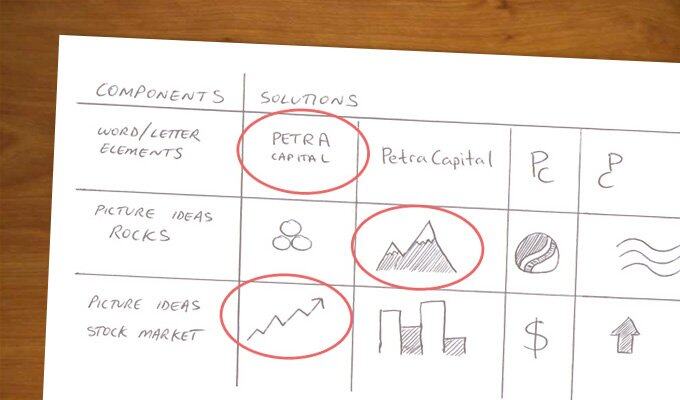 COMPONENTS
SOLUTIONS
WORD/LETTER
ELEMENTS
PETRA
CAPITAL
Petra Capital
PC
PC
PICTURE IDEAS
ROCKS
PICTURE IDEAS
STOCK MARKET
$